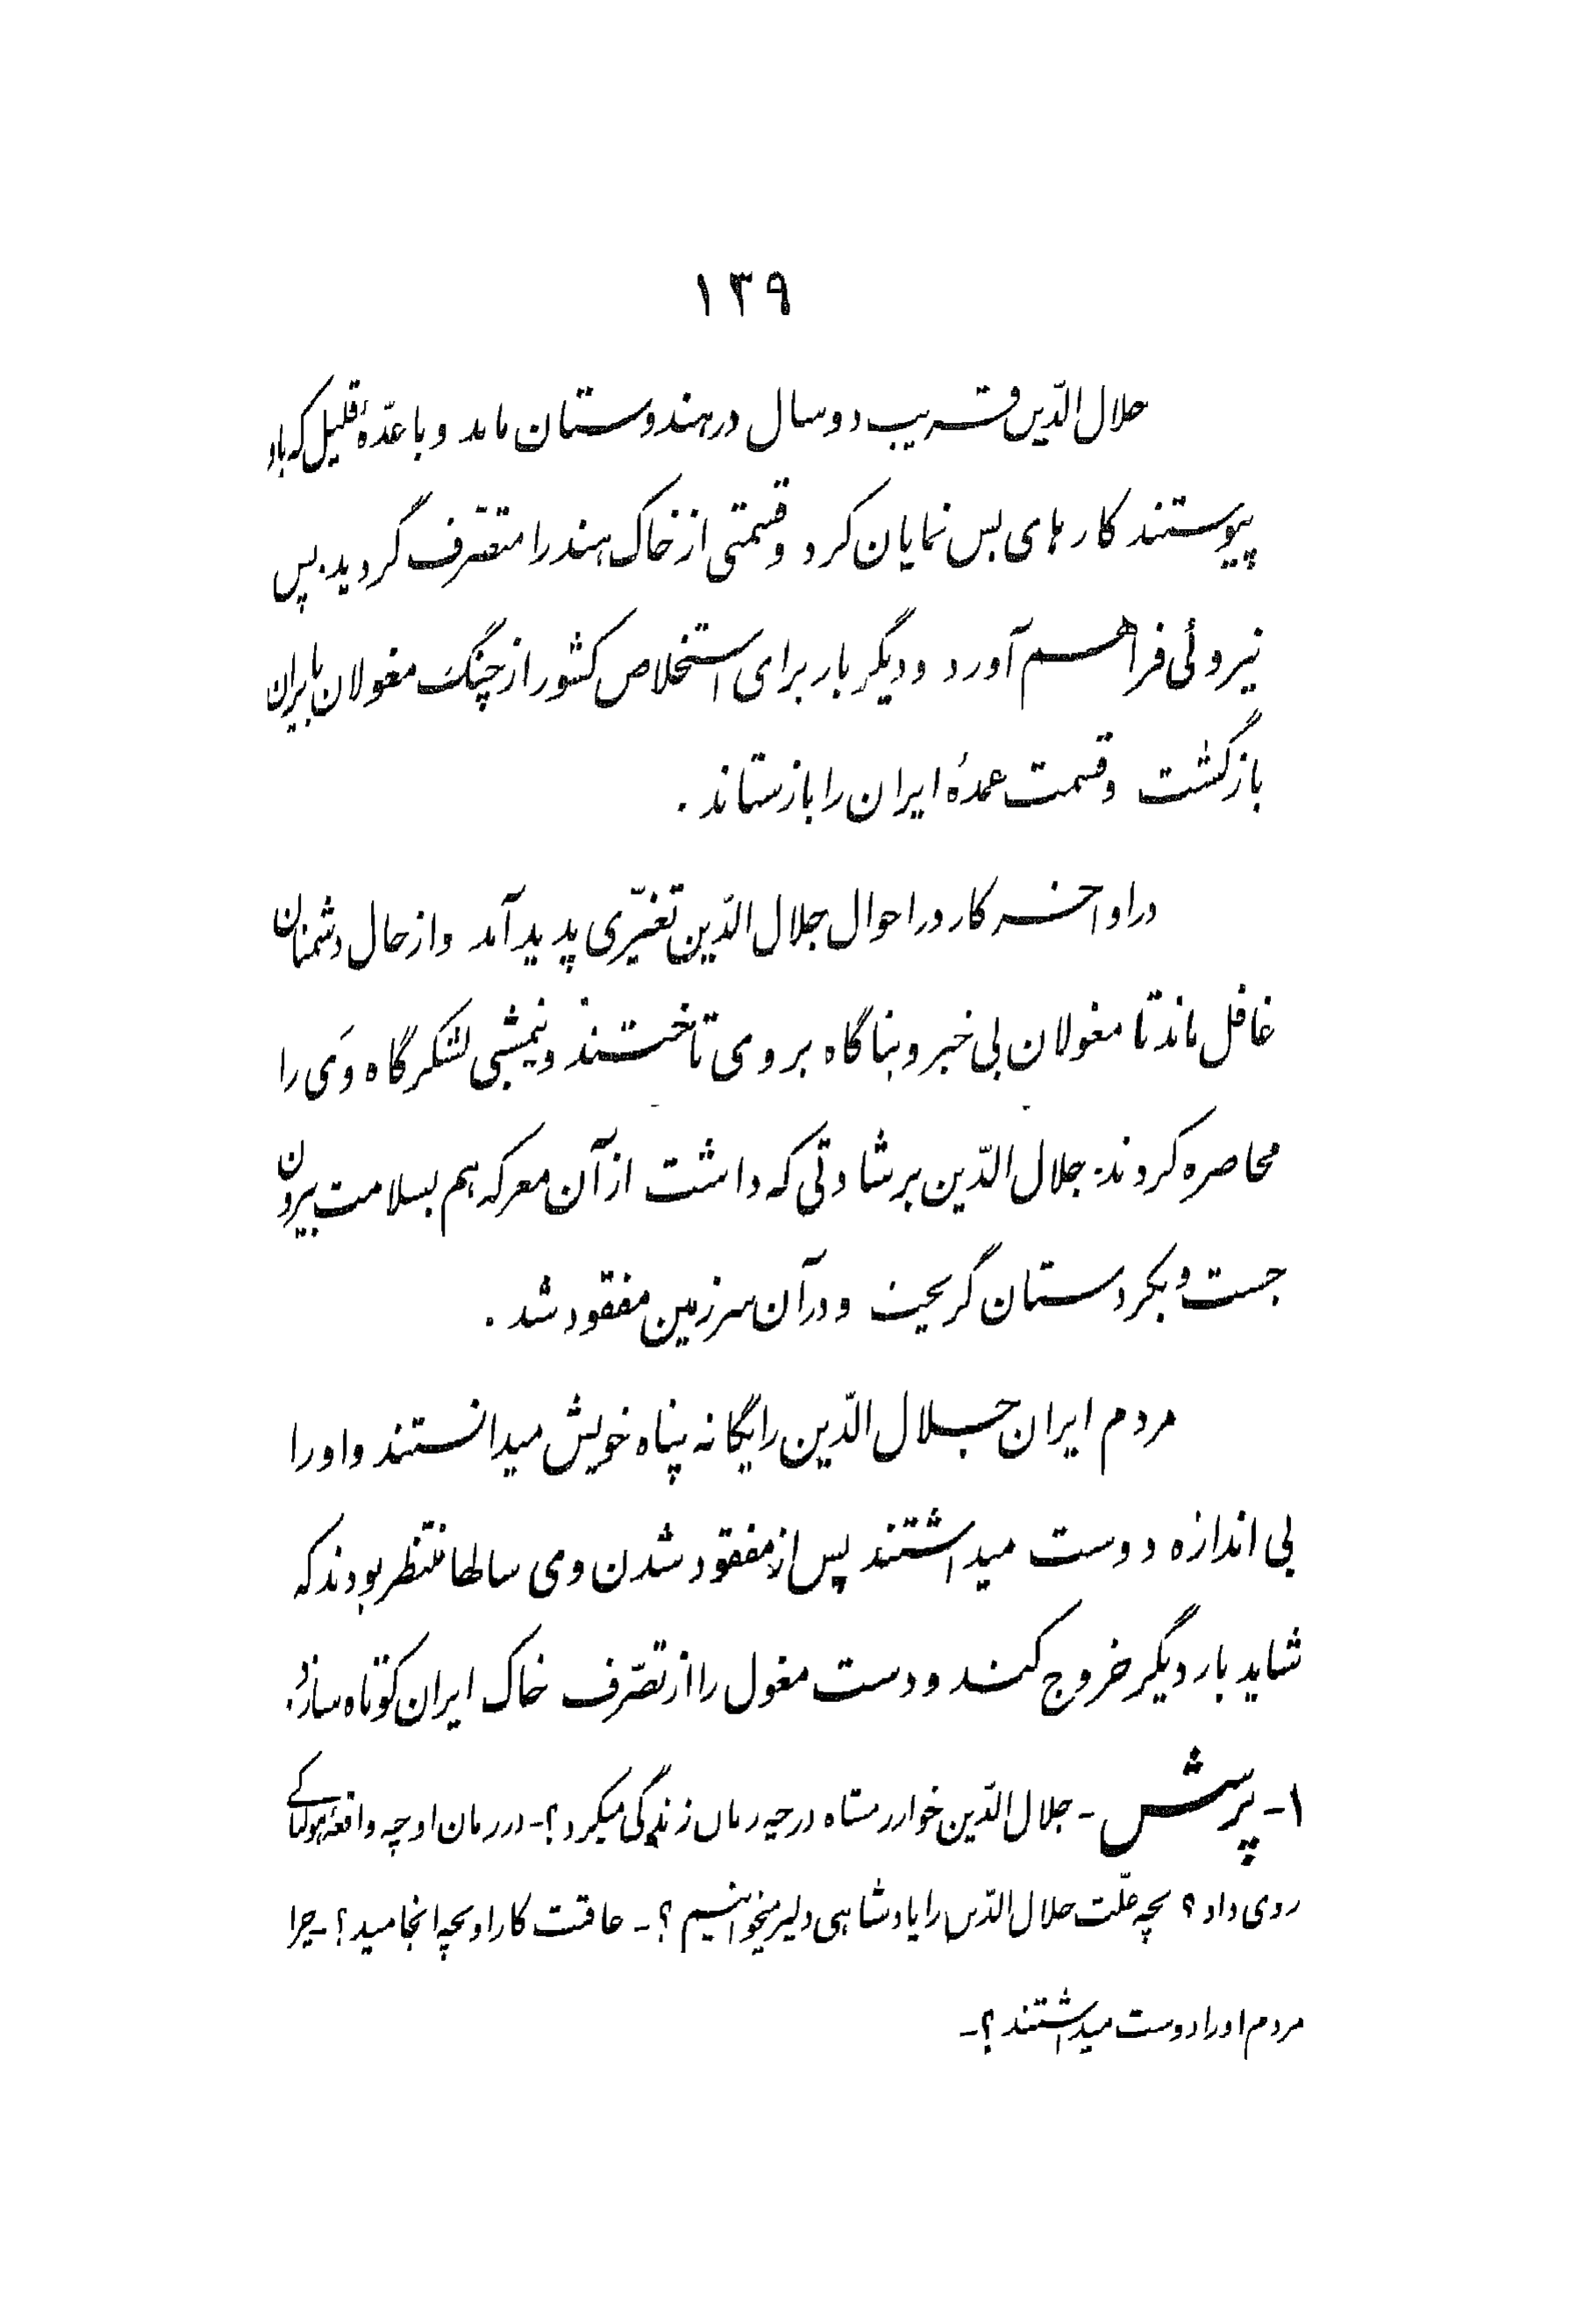 ۱۳۹
جلال الدّین قریب دو سال در هندوستان ماند و با عدّهٔ قلیل که باو
پیوستند کارهای بس نمایان کرد و قسمتی از خاک هند را متصّرف گردید. پس
نیروئی فراهم آورد و دیگر بار برای استخلاص کشور از چنگ مغولان بایران
بازگشت و قسمت عمدهٔ ایران را بازستاند .
در اواخر کار در احوال جلال الدّین تغیّری پدید آمد و از حال دشمنان
غافل ماند تا مغولان بی خبر و بناگاه بر وی تاختند و نیمشبی لشکرگاه وَی را
محاصره کردند. جلال الدّین بر شادتی که داشت از آن معرکه هم بسلامت بیرون
جست و بکردستان گریخت و در آن سرزمین مفقود شد .
مردم ایران جلال الدّین را یگانه پناه خویش میدانستند و او را
بی اندازه دوست میداشتند پس از مفقود شدن وی سالها منتظر بودند که
شاید بار دیگر خروج کند و دست مغول را از تصّرف خاک ایران کوتاه سازد.
۱- پرسش - جلال الدّین خوارزمشاه در چه زمان زندگی میکرد ؟- در زمان او چه واقعهٔ هولناکے
روی داد ؟ بچه علّت جلال الدّین را پادشاهی دلیر میخوانیم ؟- عاقبت کار او بچه انجامید ؟- چرا
مردم او را دوست میداشتند ؟-